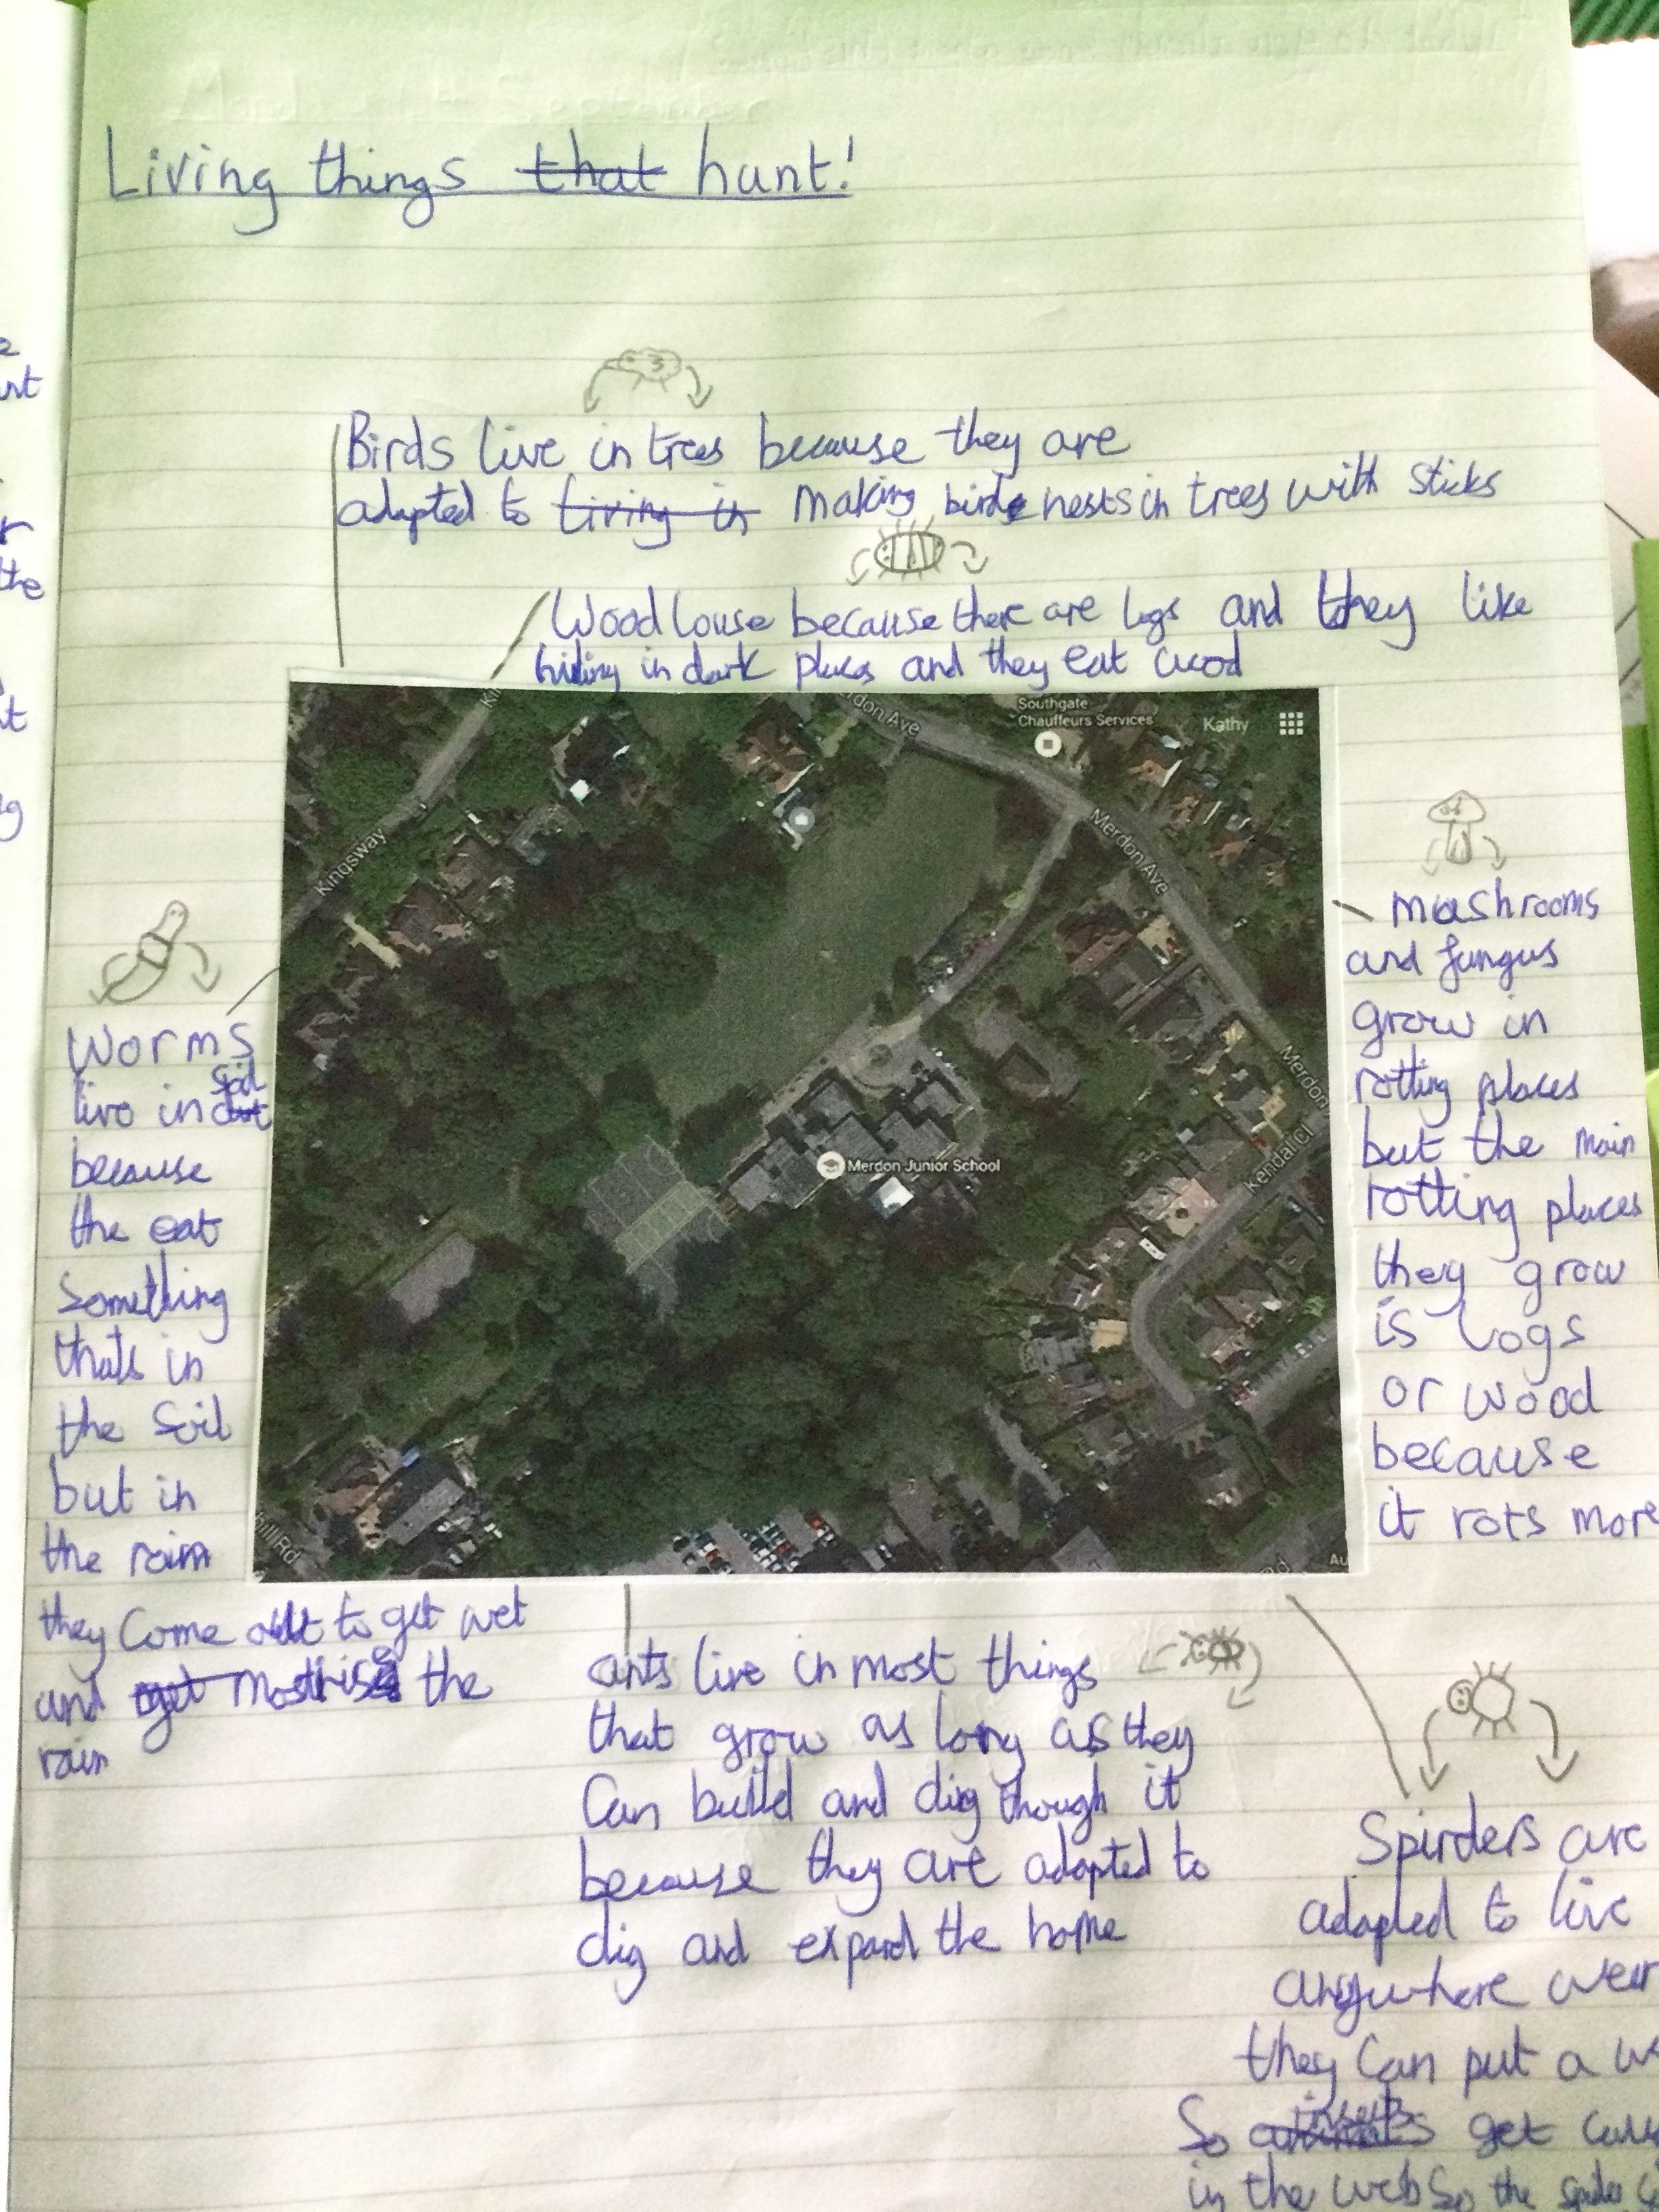 Living things that hunt!
Birds live in trees because they are
adapted to living in making birds nests in trees with sticks
Wood louse because there are logs and they like
hiding in dark places and they eat wood
Southgate
Chauffeurs Services
Kathy
rdon Ave
Kin
Kingsway
Merdon Ave
Merdon
Kendal Cl
Merdon Junior School
hill Rd
Rd
Au
mushrooms
and fungus
grow in
rotting places
but the main
rotting places
they grow
is logs
or wood
because
it rots more
worms
soil
live in dirt
because
the eat
something
thats in
the soil
but in
the rain
they come out to get wet
and get the
rain
ants live in most things
that grow as long as they
can build and dig though it
because they are adapted to
dig and expand the home
Spirders are
adapted to live
anywhere wear
they can put a we
insects
So animals get cau
in the web so the spider c
e
nt
r
the
t
ng